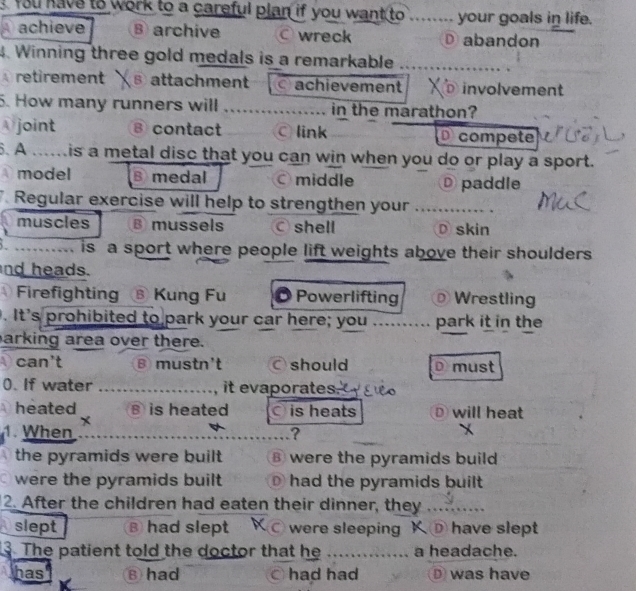 3. You have to work to a careful plan if you want to ........ your goals in life.
A achieve B archive C wreck D abandon
4. Winning three gold medals is a remarkable .................. .
A retirement B attachment C achievement D involvement
5. How many runners will .................. in the marathon?
A joint B contact C link D compete
6. A ......is a metal disc that you can win when you do or play a sport.
A model B medal C middle D paddle
7. Regular exercise will help to strengthen your ............ .
A muscles B mussels C shell D skin
8. ............ is a sport where people lift weights above their shoulders
and heads.
A Firefighting B Kung Fu C Powerlifting D Wrestling
. It's prohibited to park your car here; you .......... park it in the
parking area over there.
A can't B mustn't C should D must
0. If water ...................., it evaporates.
A heated B is heated C is heats D will heat
1. When ....................................?
A the pyramids were built B were the pyramids build
C were the pyramids built D had the pyramids built
12. After the children had eaten their dinner, they ..........
A slept B had slept C were sleeping D have slept
13. The patient told the doctor that he .............. a headache.
A has B had C had had D was have